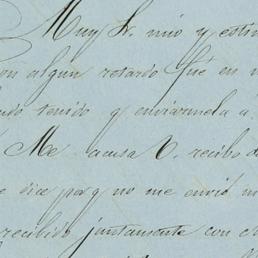 Muy Sr. mio y estim
on algun retardo fué en m
ido tenido q enviármela a
Me acusa V. recibo de
e dice porq no me envió m
recibido juntamente con el